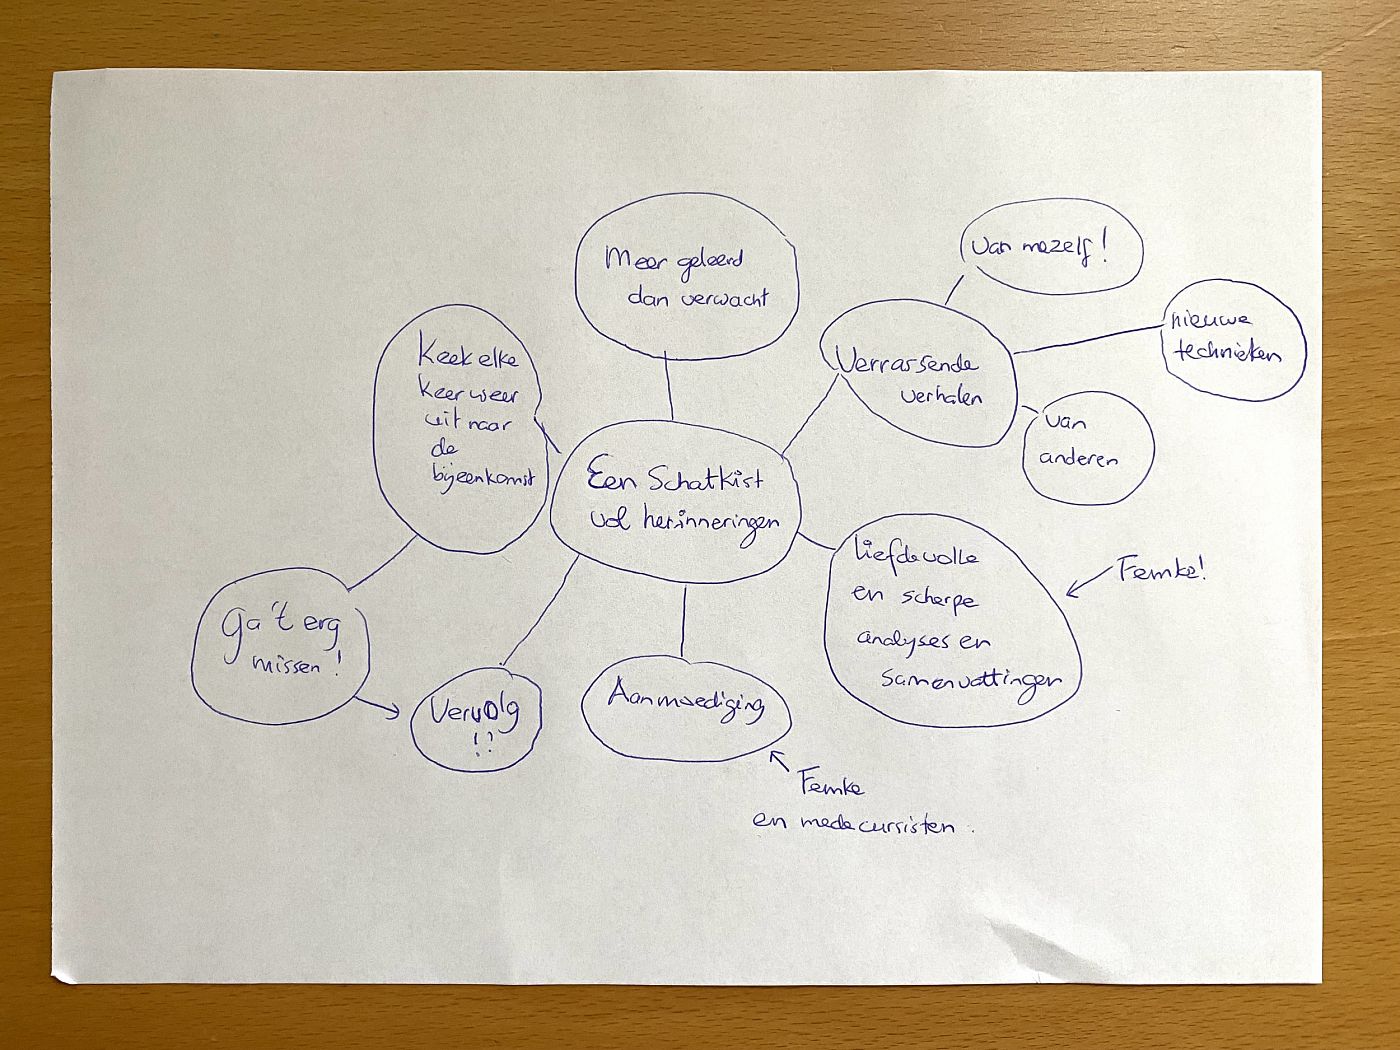 Meer geleerd
dan verwacht
van mezelf!
nieuwe
technieken
Verrassende
verhalen
van
anderen
Keek elke
keer weer
uit naar
de
bijeenkomst
Een Schatkist
vol herinneringen
liefdevolle
en scherpe
analyses en
samenvattingen
Femke!
Ga 't erg
missen!
Vervolg
!?
Aanmoediging
Femke
en medecursisten.